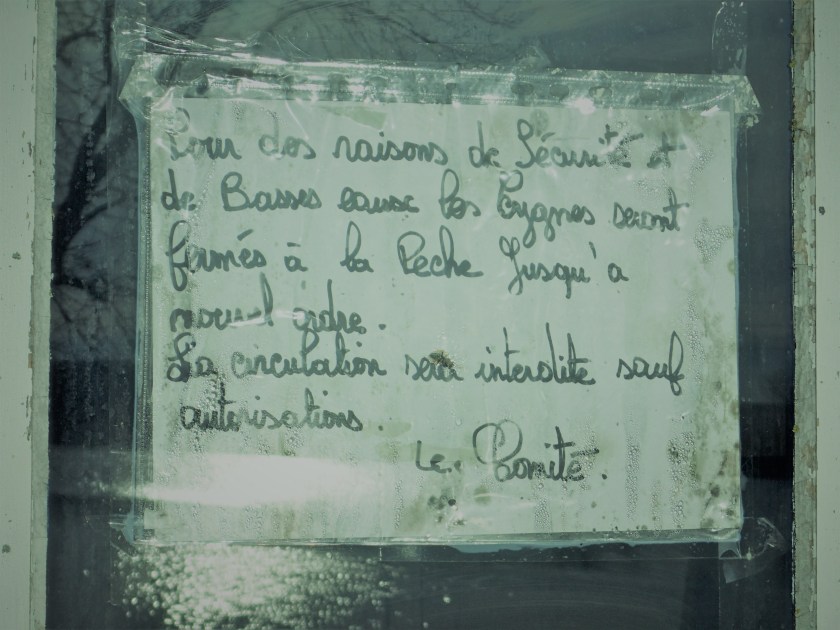 Pour des raisons de Sécurité et
de Basses eause les Cygnes seront
fermés à la Pêche Jusqu'a
nouvel ordre.
La circulation sera interdite sauf
autorisations.
Le. Comité.